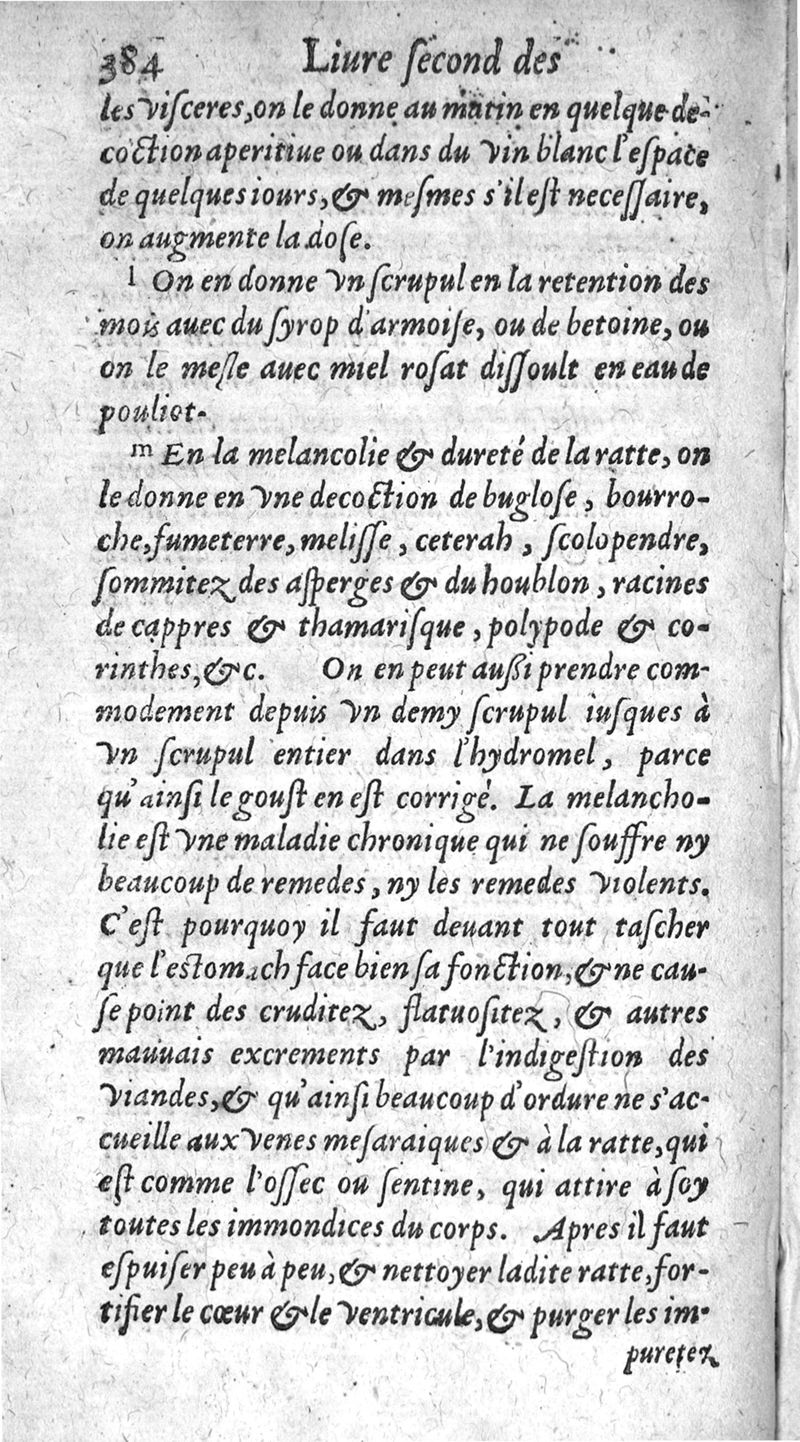 384 Liure ſecond des
les viſceres, on le donne au matin en quelque de-
coction aperitiue ou dans du vin blanc l'eſpace
de quelques iours, & meſmes s'il eſt neceſſaire,
on augmente la doſe.
l On en donne vn ſcrupul en la retention des
mois auec du ſyrop d'armoiſe, ou de betoine, ou
on le meſle auec miel roſat diſſoult en eau de
pouliot.
m En la melancolie & dureté de la ratte, on
le donne en vne decoction de bugloſe, bourro-
che, fumeterre, meliſſe, ceterah, ſcolopendre,
ſommitez des aſperges & du houblon, racines
de cappres & thamariſque, polypode & co-
rinthes, &c. On en peut auſſi prendre com-
modement depuis vn demy ſcrupul iuſques à
vn ſcrupul entier dans l'hydromel, parce
qu'ainſi le gouſt en eſt corrigé. La melancho-
lie eſt vne maladie chronique qui ne ſouffre ny
beaucoup de remedes, ny les remedes violents.
C'eſt pourquoy il faut deuant tout taſcher
que l'estomach face bien ſa fonction, & ne cau-
ſe point des cruditez, flatuoſitez, & autres
mauuais excrements par l'indigeſtion des
viandes, & qu'ainſi beaucoup d'ordure ne s'ac-
cueille aux venes meſaraiques & à la ratte, qui
eſt comme l'oſſec ou ſentine, qui attire à ſoy
toutes les immondices du corps. Apres il faut
eſpuiſer peu à peu, & nettoyer ladite ratte, for-
tifier le cœur & le ventricule, & purger les im-
puretez